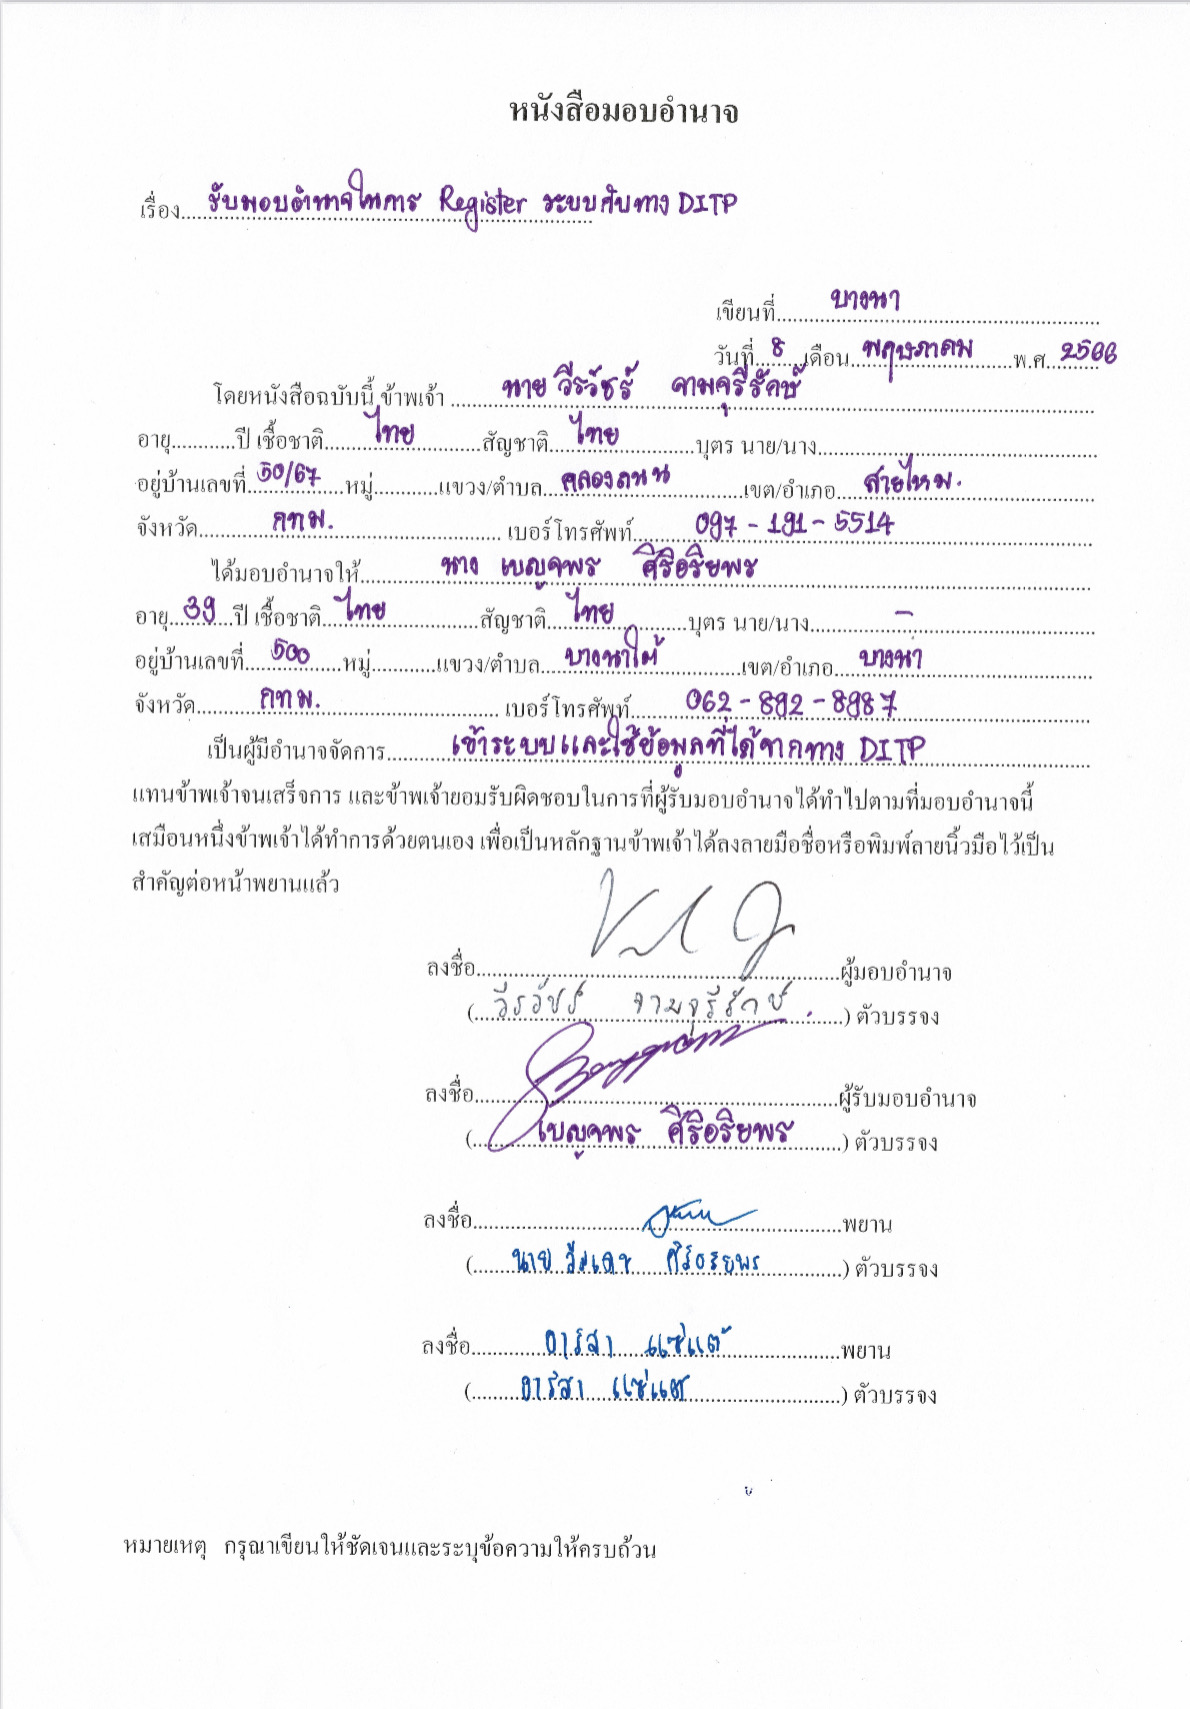 หนังสือมอบอำนาจ
เรื่อง รับมอบอำนาจในการ Register ระบบกับทาง DITP
เขียนที่ บางนา
วันที่ 8 เดือน พฤษภาคม พ.ศ. 2566
โดยหนังสือฉบับนี้ ข้าพเจ้า นาย วีรวัชร์ จามจุรีรักษ์
อายุ...........ปี เชื้อชาติ ไทย สัญชาติ ไทย บุตร นาย/นาง
อยู่บ้านเลขที่ 50/67 หมู่............แขวง/ตำบล คลองถนน เขต/อำเภอ สายไหม.
จังหวัด กทม. เบอร์โทรศัพท์ 097-191-5514
ได้มอบอำนาจให้ นาง เบญจพร ศิริอริยพร
อายุ 39 ปี เชื้อชาติ ไทย สัญชาติ ไทย บุตร นาย/นาง -
อยู่บ้านเลขที่ 500 หมู่............แขวง/ตำบล บางนาใต้ เขต/อำเภอ บางนา
จังหวัด กทม. เบอร์โทรศัพท์ 062-892-8987
เป็นผู้มีอำนาจจัดการ เข้าระบบและใช้ข้อมูลที่ได้จากทาง DITP
แทนข้าพเจ้าจนเสร็จการ และข้าพเจ้ายอมรับผิดชอบในการที่ผู้รับมอบอำนาจได้ทำไปตามที่มอบอำนาจนี้
เสมือนหนึ่งข้าพเจ้าได้ทำการด้วยตนเอง เพื่อเป็นหลักฐานข้าพเจ้าได้ลงลายมือชื่อหรือพิมพ์ลายนิ้วมือไว้เป็น
สำคัญต่อหน้าพยานแล้ว
ลงชื่อ ผู้มอบอำนาจ
( วีรวัชร์ จามจุรีรักษ์ ) ตัวบรรจง
ลงชื่อ ผู้รับมอบอำนาจ
( เบญจพร ศิริอริยพร ) ตัวบรรจง
ลงชื่อ พยาน
( นาย ศิริอริยพร ) ตัวบรรจง
ลงชื่อ อาริสา แซ่แต้ พยาน
( อาริสา แซ่แต้ ) ตัวบรรจง
หมายเหตุ กรุณาเขียนให้ชัดเจนและระบุข้อความให้ครบถ้วน